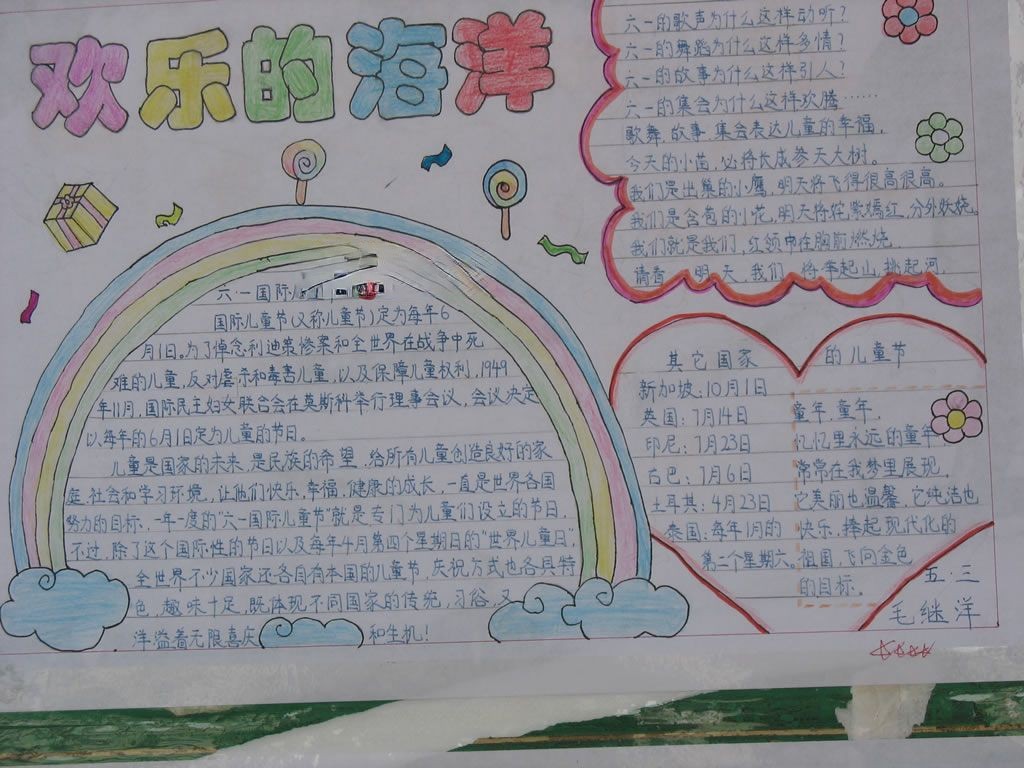 欢乐的海洋
六·一国际儿
国际儿童节(又称儿童节)定为每年6
月1日。为了悼念利迪策惨案和全世界在战争中死
难的儿童,反对虐杀和毒害儿童,以及保障儿童权利,1949
年11月,国际民主妇女联合会在莫斯科举行理事会议,会议决定
以每年的6月1日定为儿童的节日。
儿童是国家的未来,是民族的希望,给所有儿童创造良好的家
庭,社会和学习环境,让他们快乐,幸福,健康的成长,一直是世界各国
努力的目标,一年一度的"六一国际儿童节"就是专门为儿童们设立的节日,
不过,除了这个国际性的节日以及每年4月第四个星期日的"世界儿童日",
全世界不少国家还各自有本国的儿童节,庆祝方式也各具特
色,趣味十足,既体现不同国家的传统,习俗,又
洋溢着无限喜庆 和生机!
六一的歌声为什么这样动听?
六一的舞蹈为什么这样多情?
六一的故事为什么这样引人?
六一的集会为什么这样欢腾……
歌舞,故事,集会表达儿童的幸福,
今天的小苗,必将长成参天大树。
我们是出巢的小鹰,明天将飞得很高很高。
我们是含苞的小花,明天将姹紫嫣红,分外妖娆。
我们就是我们,红领巾在胸前燃烧,
请看,明天,我们,将举起山,挑起河,
其它国家 的儿童节
新加坡:10月1日
英国:7月14日
印尼:7月23日
古巴:7月6日
土耳其:4月23日
泰国:每年1月的
第二个星期六。
童年,童年,
忆忆里永远的童年
常常在我梦里展现,
它美丽也温馨,它纯洁也
快乐,捧起现代化的
祖国,飞向金色
的目标,
五·三
毛继洋